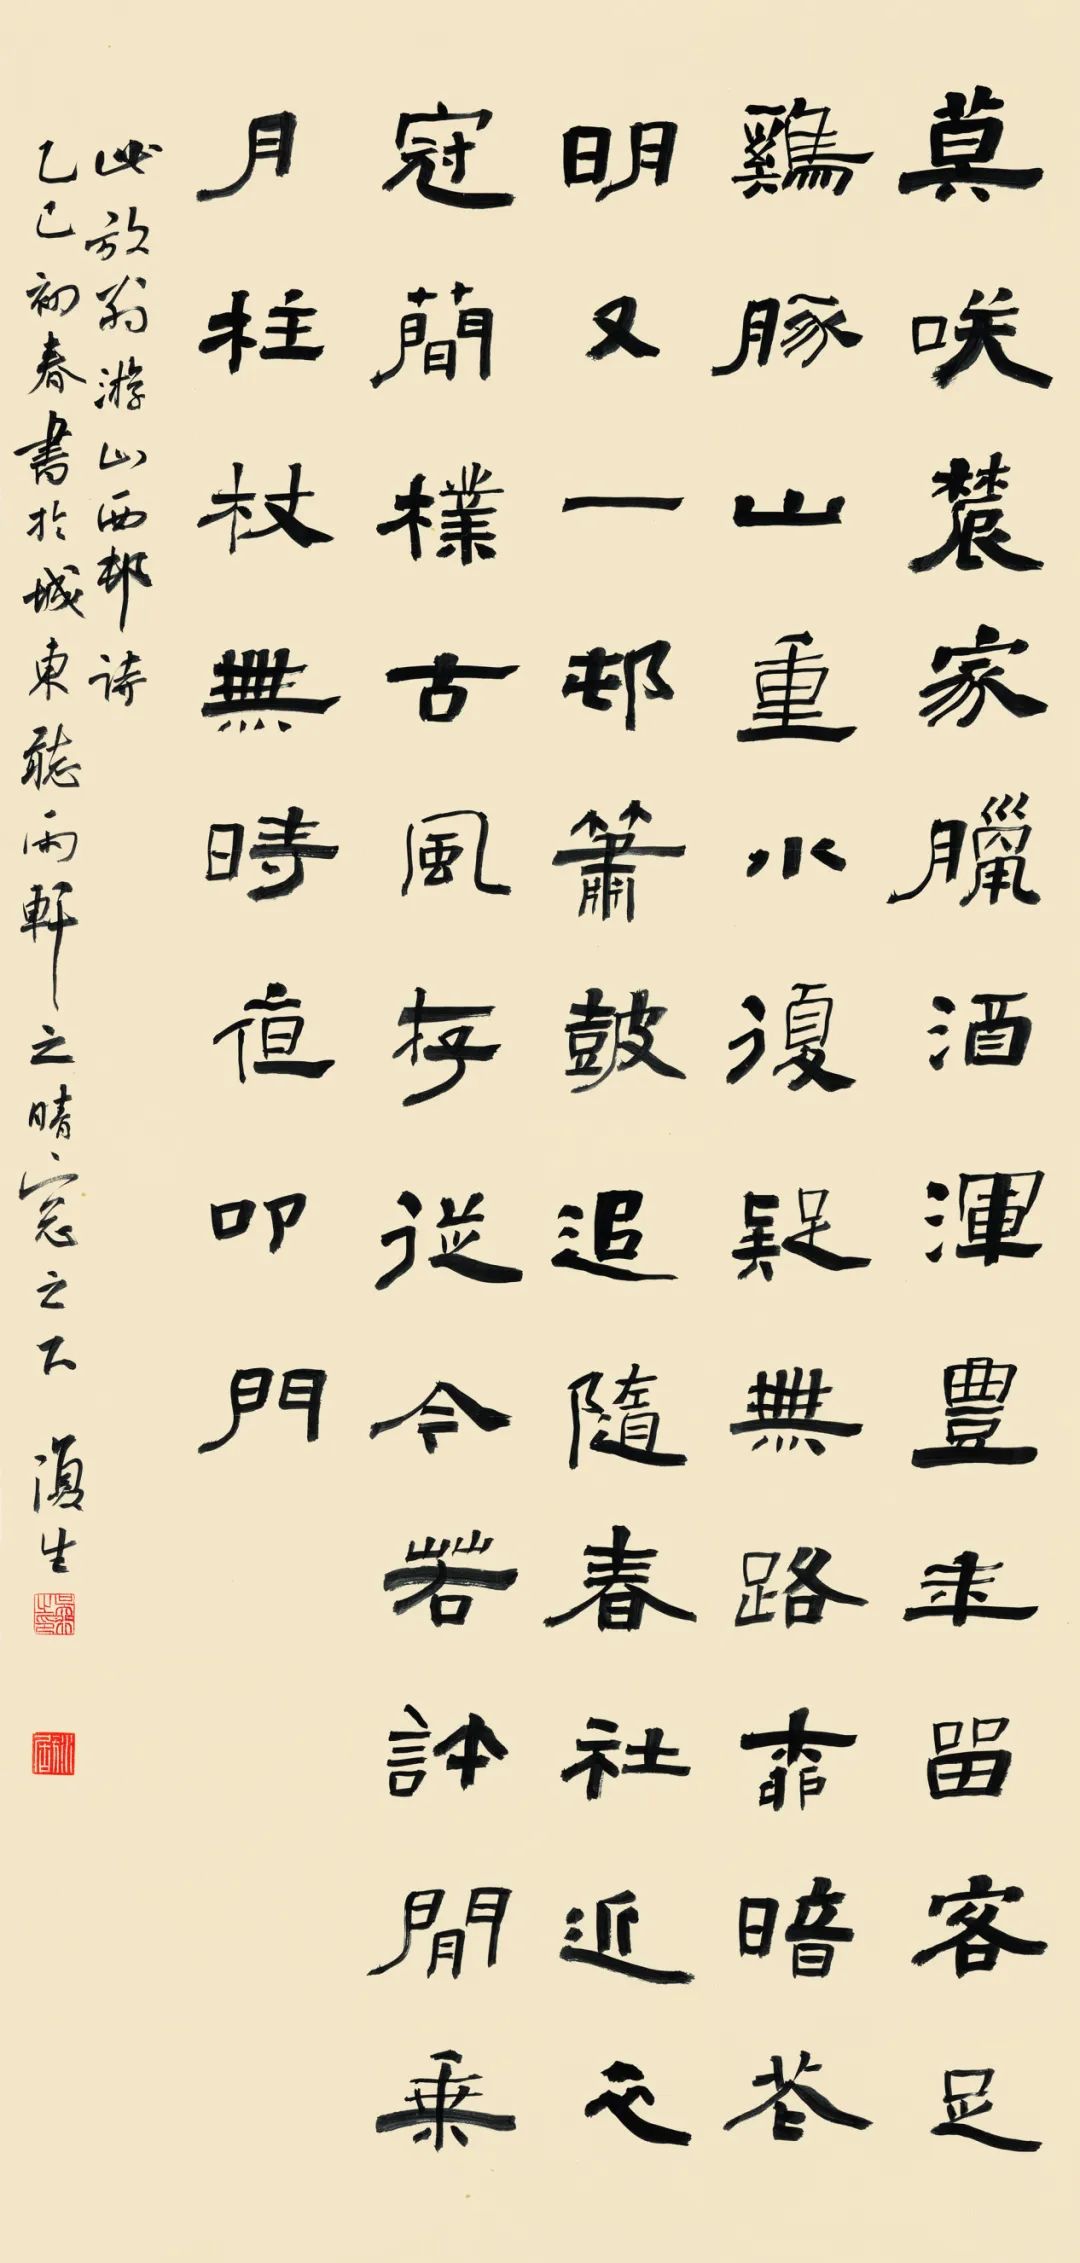 莫咲農家臘酒渾豐年留客足
鷄豚山重水復疑無路桺暗花
明又一邨簫鼓追隨春社近衣
冠簡樸古風存從今若許閒乘
月柱杖無時夜叩門
此放翁游山西邨詩
乙巳初春書於城東聽雨軒之晴窗之下 復生